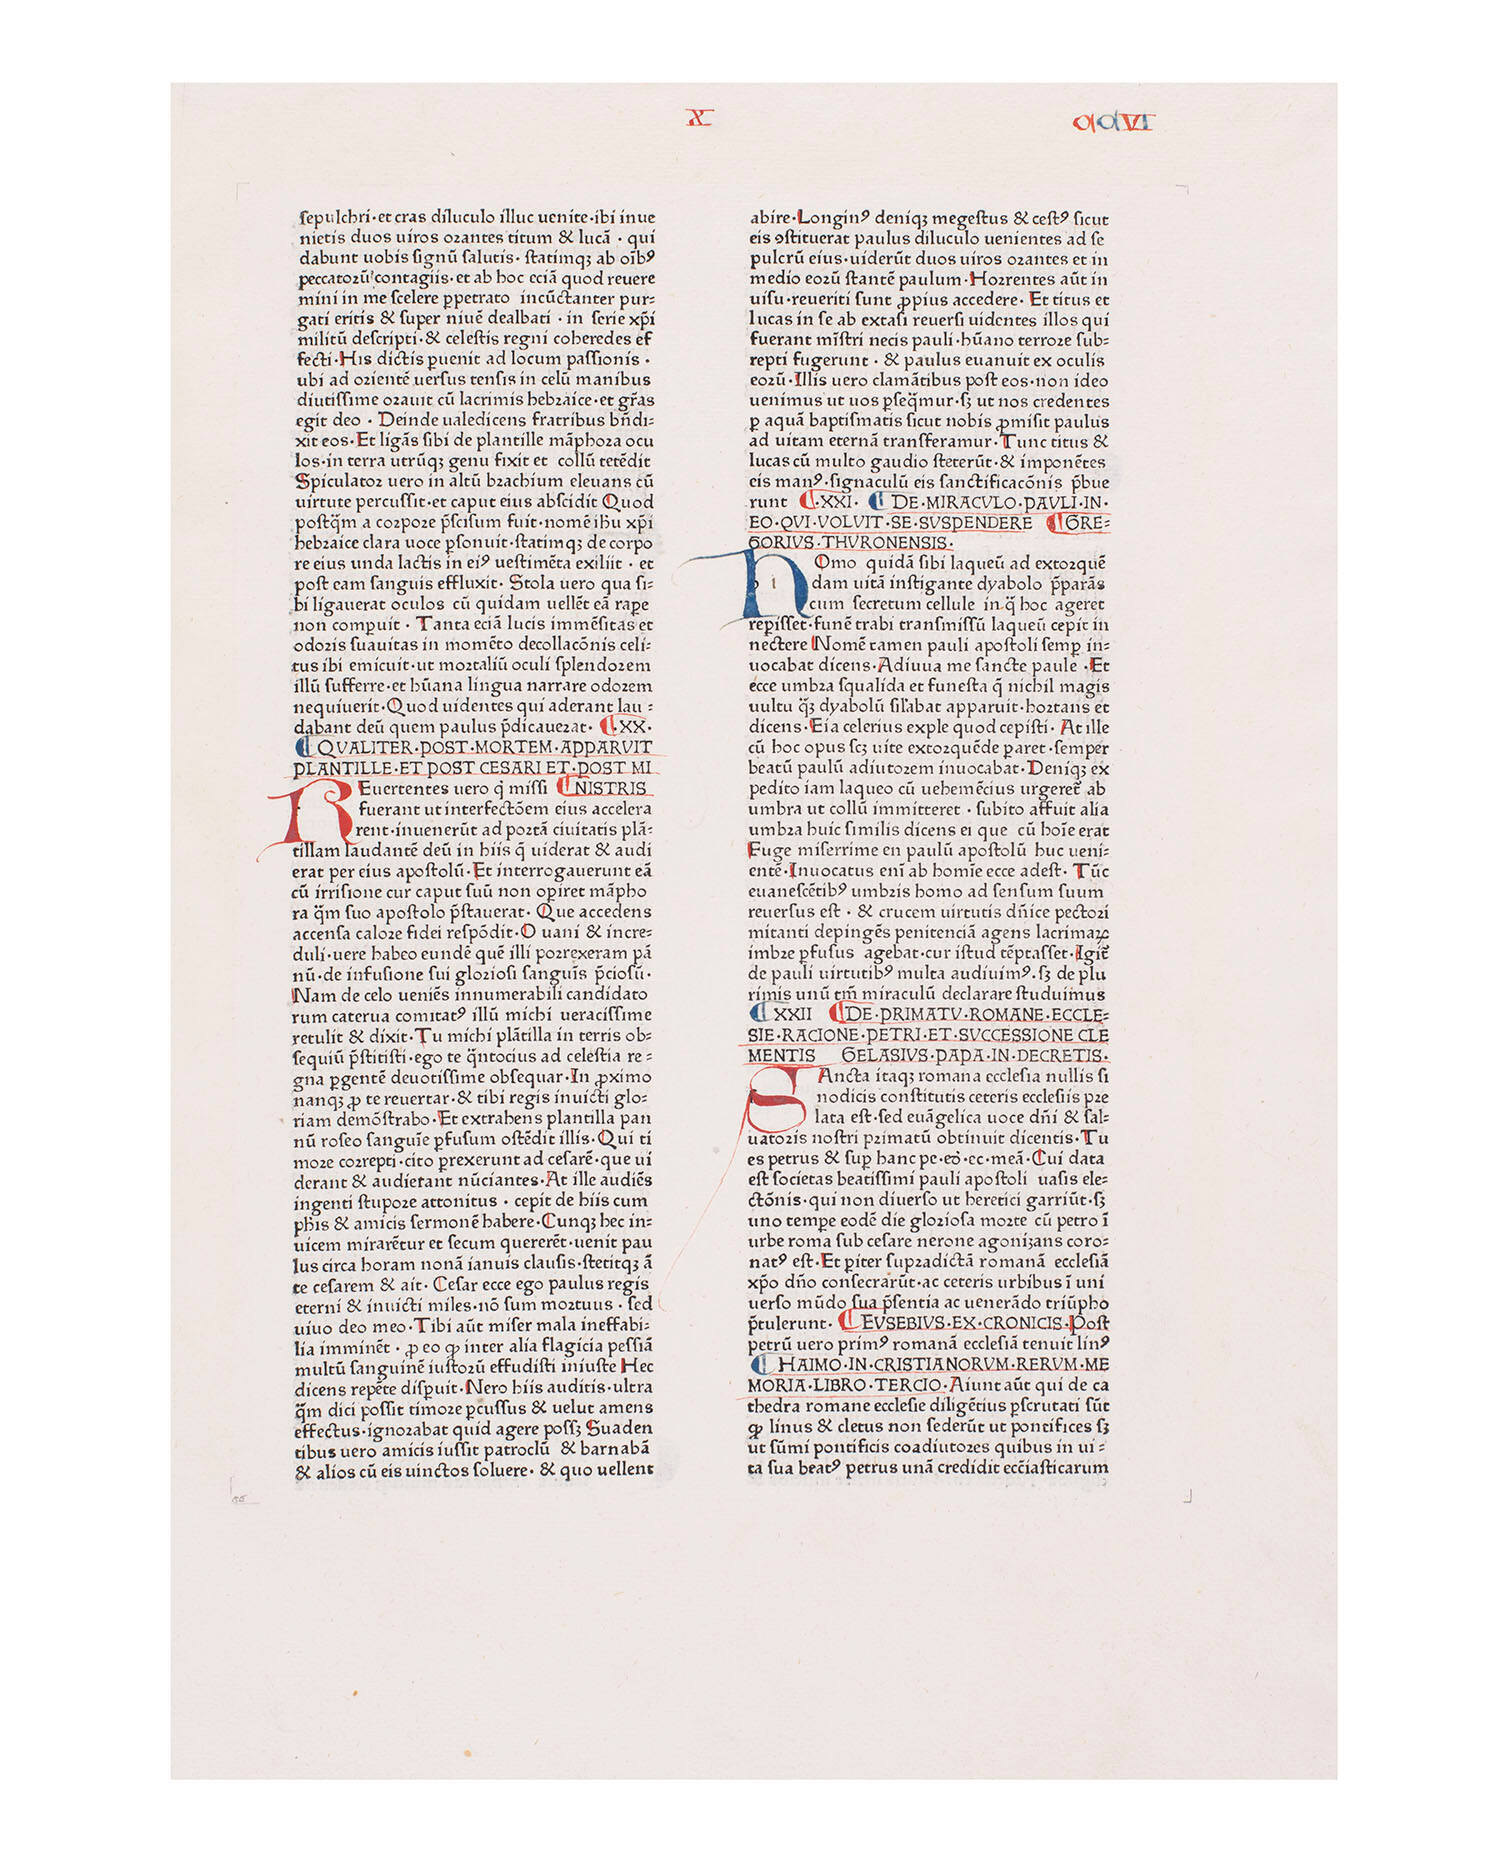 X
ꝺꝺVI
sepulchri·et cras diluculo illuc uenite·ibi inue
nietis duos uiros orantes titum & lucā · qui
dabunt uobis signū salutis· statimqꝫ ab oībꝰ
peccatorū contagiis·et ab hoc eciā quod reuere
mini in me scelere ꝑpetrato incūctanter pur=
gati eritis & super niuē dealbati · in serie xp̄i
militū descripti·& celestis regni coheredes ef
fecti·His dictis ꝑuenit ad locum passionis ·
ubi ad orientē uersus tensis in celū manibus
diutissime orauit cū lacrimis hebraice·et gr̄as
egit deo · Deinde ualedicens fratribus bn̄di=
xit eos·Et ligās sibi de plantille māphora ocu
los·in terra utrūqꝫ genu fixit et collū tetēdit
Spiculator uero in altū brachium eleuans cū
uirtute percussit·et caput eius abscidit Quod
postq̄m a corpore p̄scisum fuit·nomē ihu xp̄i
hebraice clara uoce ꝑsonuit·statimqꝫ de corpo
re eius unda lactis in eiꝰ uestimēta exiliit · et
post eam sanguis effluxit· Stola uero qua si=
bi ligauerat oculos cū quidam uellēt eā raꝑe
non comꝑuit · Tanta eciā lucis immēsitas et
odoris suauitas in momēto decollacōnis celi=
tus ibi emicuit·ut mortaliū oculi splendorem
illū sufferre·et hūana lingua narrare odorem
nequiuerit·Quod uidentes qui aderant lau =
dabant deū quem paulus p̄dicauerat· ¶·XX·
¶ QVALITER·POST·MORTEM·APPARVIT
PLANTILLE·ET POST CESARI ET·POST MI
REuertentes uero q̄ missi ¶NISTRIS
fuerant ut interfectōem eius accelera
rent·inuenerūt ad portā ciuitatis plā=
tillam laudantē deū in hiis q̄ uiderat & audi
erat per eius apostolū·Et interrogauerunt eā
cū irrisione cur caput suū non oꝑiret māpho
ra q̄m suo apostolo p̄stauerat· Que accedens
accensa calore fidei respōdit·O uani & incre=
duli·uere habeo eundē quē illi porrexeram pā
nū·de infusione sui gloriosi sanguīs p̄ciosū·
Nam de celo ueniēs innumerabili candidato
rum caterua comitatꝰ illū michi ueracissime
retulit & dixit·Tu michi plātilla in terris ob=
sequiū p̄stitisti·ego te q̄ntocius ad celestia re =
gna ꝑgentē deuotissime obsequar·In ꝓximo
nanqꝫ ꝓ te reuertar·& tibi regis inuicti glo=
riam demōstrabo·Et extrahens plantilla pan
nū roseo sanguīe ꝑfusum ostēdit illis·Qui ti
more correpti·cito ꝑrexerunt ad cesarē·que ui
derant & audierant nūciantes·At ille audiēs
ingenti stupore attonitus · cepit de hiis cum
ph̄is & amicis sermonē habere·Cunqꝫ hec in=
uicem mirarētur et secum quererēt·uenit pau
lus circa horam nonā ianuis clausis·stetitqꝫ ā
te cesarem & ait· Cesar ecce ego paulus regis
eterni & inuicti miles·nō sum mortuus · sed
uiuo deo meo·Tibi aūt miser mala ineffabi=
lia imminēt · ꝓ eo ꝙ inter alia flagicia pessiā
multū sanguinē iustorū effudisti iniuste Hec
dicens repēte disꝑuit·Nero hiis auditis·ultra
q̄m dici possit timore ꝑcussus & uelut amens
effectus·ignorabat quid agere possꝫ Suaden
tibus uero amicis iussit patroclū & barnabā
& alios cū eis uinctos soluere· & quo uellent
abire·Longinꝰ deniqꝫ megestus & cestꝰ sicut
eis ꝯstituerat paulus diluculo uenientes ad se
pulcrū eius·uiderūt duos uiros orantes et in
medio eorū stantē paulum·Horrentes aūt in
uisu·reueriti sunt ꝓpius accedere· Et titus et
lucas in se ab extasi reuersi uidentes illos qui
fuerant mīstri necis pauli·hūano terrore sub=
repti fugerunt · & paulus euanuit ex oculis
eorū·Illis uero clamātibus post eos·non ideo
uenimus ut uos ꝑseq̄mur·sꝫ ut nos credentes
ꝑ aquā baptismatis sicut nobis ꝓmisit paulus
ad uitam eternā transferamur·Tunc titus &
lucas cū multo gaudio steterūt·& imponētes
eis manꝰ·signaculū eis sanctificacōnis p̄bue
runt ¶·XXI· ¶ DE·MIRACULO·PAVLI·IN·
EO·QVI·VOLVIT·SE·SVSPENDERE ¶GRE=
GORIVS·THVRONENSIS·
HOmo quidā sibi laqueū ad extorquē
dam uitā instigante dyabolo p̄parās
cum secretum cellule in q̄ hoc ageret
reꝑisset·funē trabi transmissū laqueū cepit in
nectere Nomē tamen pauli apostoli semꝑ in=
uocabat dicens·Adiuua me sancte paule ·Et
ecce umbra squalida et funesta q̄ nichil magis
uultu q̄ꝫ dyabolū sil'abat apparuit·hortans et
dicens·Eia celerius exple quod cepisti· At ille
cū hoc opus scꝫ uite extorquēde ꝑaret·semper
beatū paulū adiutorem inuocabat·Deniqꝫ ex
pedito iam laqueo cū uehemēcius urgeret̄ ab
umbra ut collū immitteret · subito affuit alia
umbra huic similis dicens ei que cū hoīe erat
Fuge miserrime en paulū apostolū huc ueni=
entē·Inuocatus enī ab homīe ecce adest· Tūc
euanescētibꝰ umbris homo ad sensum suum
reuersus est · & crucem uirtutis dn̄ice pectori
mitanti depingēs penitenciā agens lacrimaꝝ
imbre ꝑfusus agebat·cur istud tēptasset·Igit̄
de pauli uirtutibꝰ multa audiuimꝰ·sꝫ de plu
rimis unū tm̄ miraculū declarare studuimus
¶ XXII ¶DE·PRIMATV·ROMANE·ECCLE=
SIE·RACIONE·PETRI·ET·SVCCESSIONE CLE
MENTIS GELASIVS·PAPA·IN·DECRETIS·
SAncta itaqꝫ romana ecclesia nullis si
nodicis constitutis ceteris ecclesiis pre
lata est·sed euāgelica uoce dn̄i & sal=
uatoris nostri primatū obtinuit dicentis·Tu
es petrus & suꝑ hanc pe·eō·ec·meā·Cui data
est societas beatissimi pauli apostoli uasis ele=
ctōnis·qui non diuerso ut heretici garriūt·sꝫ
uno temꝑe eodē die gloriosa morte cū petro ī
urbe roma sub cesare nerone agonizans coro=
natꝰ est·Et ꝑiter supradictā romanā ecclesiā
xp̄o dn̄o consecrarūt·ac ceteris urbibus ī uni
uerso mūdo sua p̄sentia ac uenerādo triūpho
p̄tulerunt· ¶ EVSEBIVS·EX·CRONICIS·Post
petrū uero primꝰ romanā ecclesiā tenuit linꝰ
¶ HAIMO·IN·CRISTIANORVM·RERVM·ME
MORIA·LIBRO·TERCIO·Aiunt aūt qui de ca
thedra romane ecclesie diligētius ꝑscrutati sūt
ꝙ linus & cletus non sederūt ut pontifices sꝫ
ut sūmi pontificis coadiutores quibus in ui =
ta sua beatꝰ petrus unā credidit ecc̄iasticarum